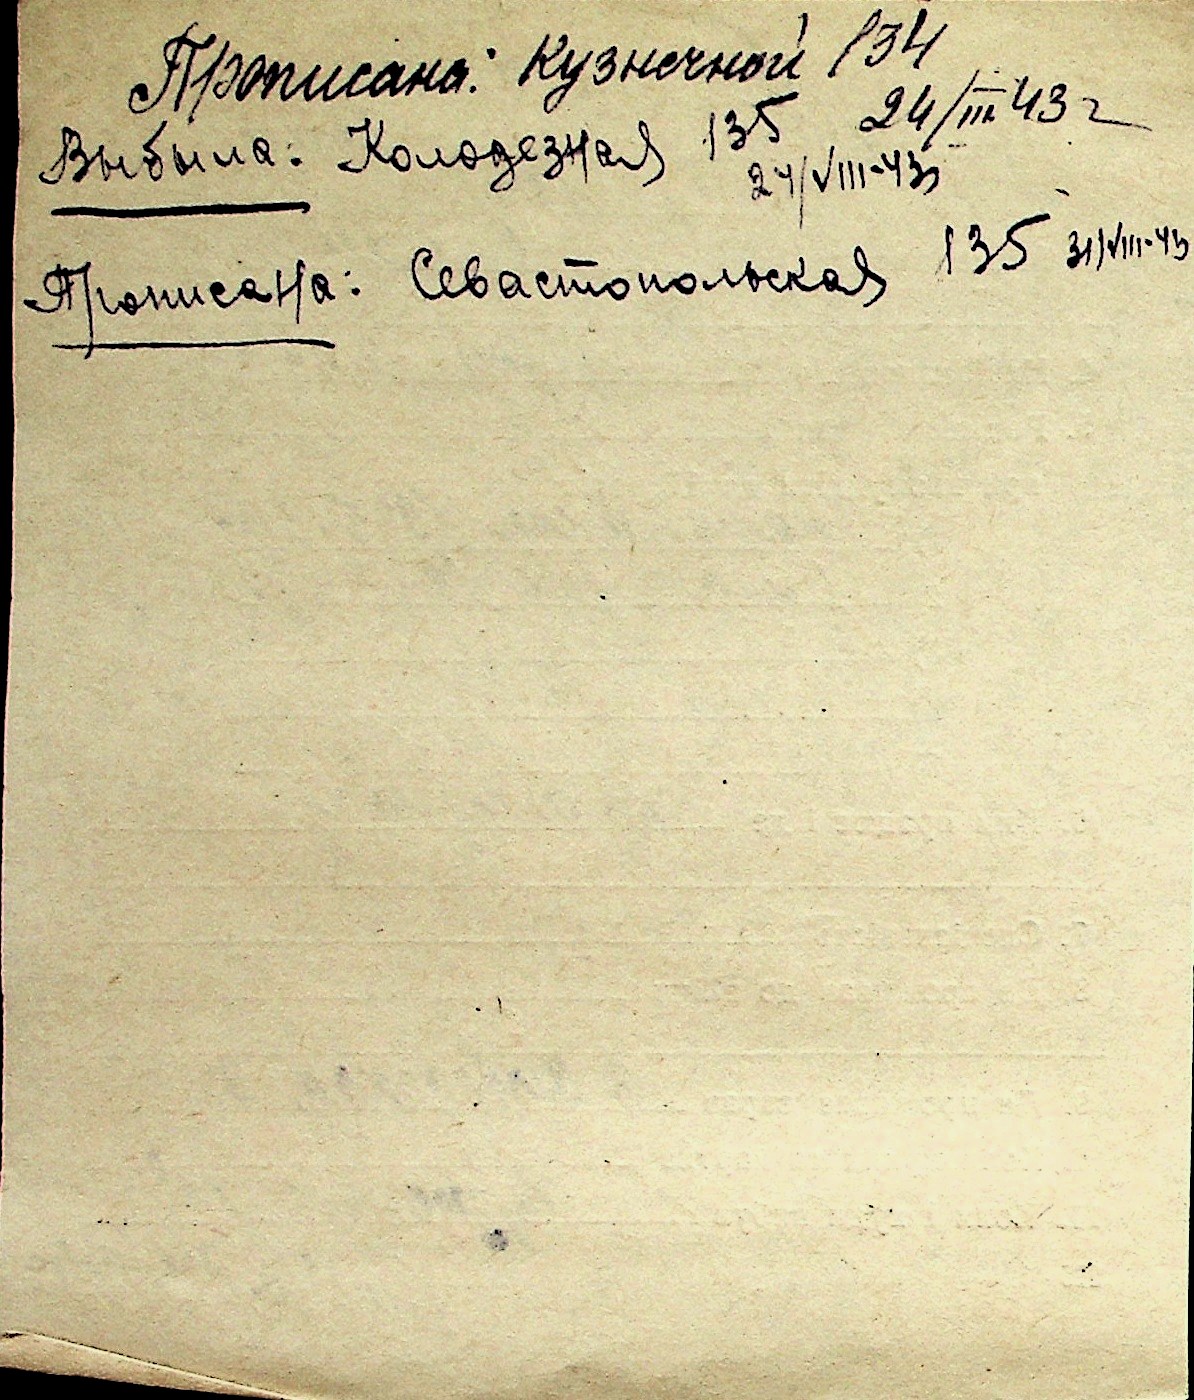 Прописана: Кузнечной 134
24/III 43 г
Выбыла: Колодезная 135
24/VIII-43
Прописана: Севастопольская 135 31/VIII-43